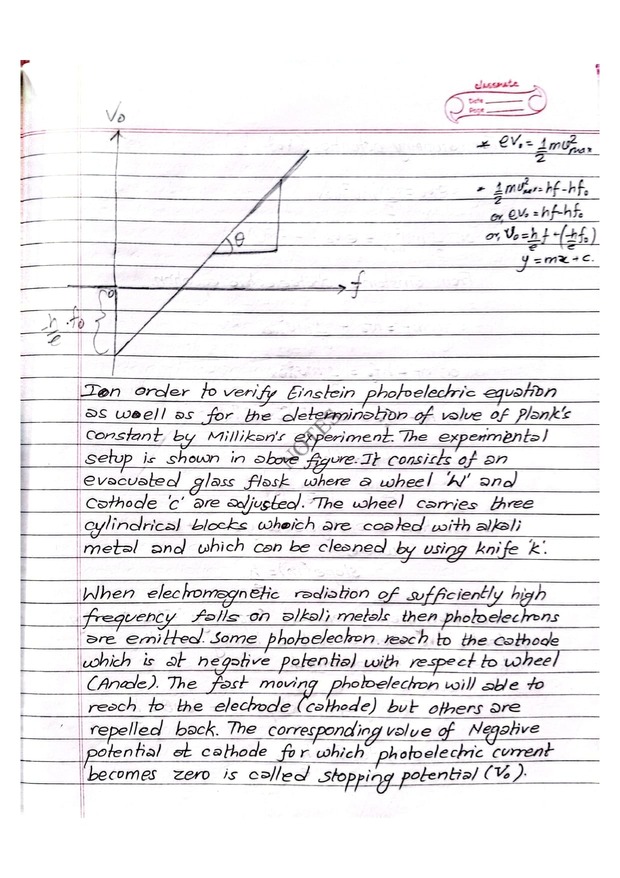 classmate
Date
Page
V₀
* eV₀ = 1/2 mv²max
* 1/2 mv²max = hf - hf₀
or, eV₀ = hf - hf₀
or, V₀ = h/e f + (-h/e f₀)
y = mx + c.
θ
0
f
-h/e . f₀
Ion order to verify Einstein photoelectric equation
as woell as for the determination of value of Plank's
constant by Millikan's experiment. The experimental
setup is shown in above figure. It consists of an
evacuated glass flask where a wheel 'W' and
cathode 'c' are adjusted. The wheel carries three
cylindrical blocks which are coated with alkali
metal and which can be cleaned by using knife 'k'.
NOTES
When electromagnetic radiation of sufficiently high
frequency falls on alkali metals then photoelectrons
are emitted. Some photoelectron reach to the cathode
which is at negative potential with respect to wheel
(Anode). The fast moving photoelectron will able to
reach to the electrode (cathode) but others are
repelled back. The corresponding value of Negative
potential at cathode for which photoelectric current
becomes zero is called stopping potential (V₀).